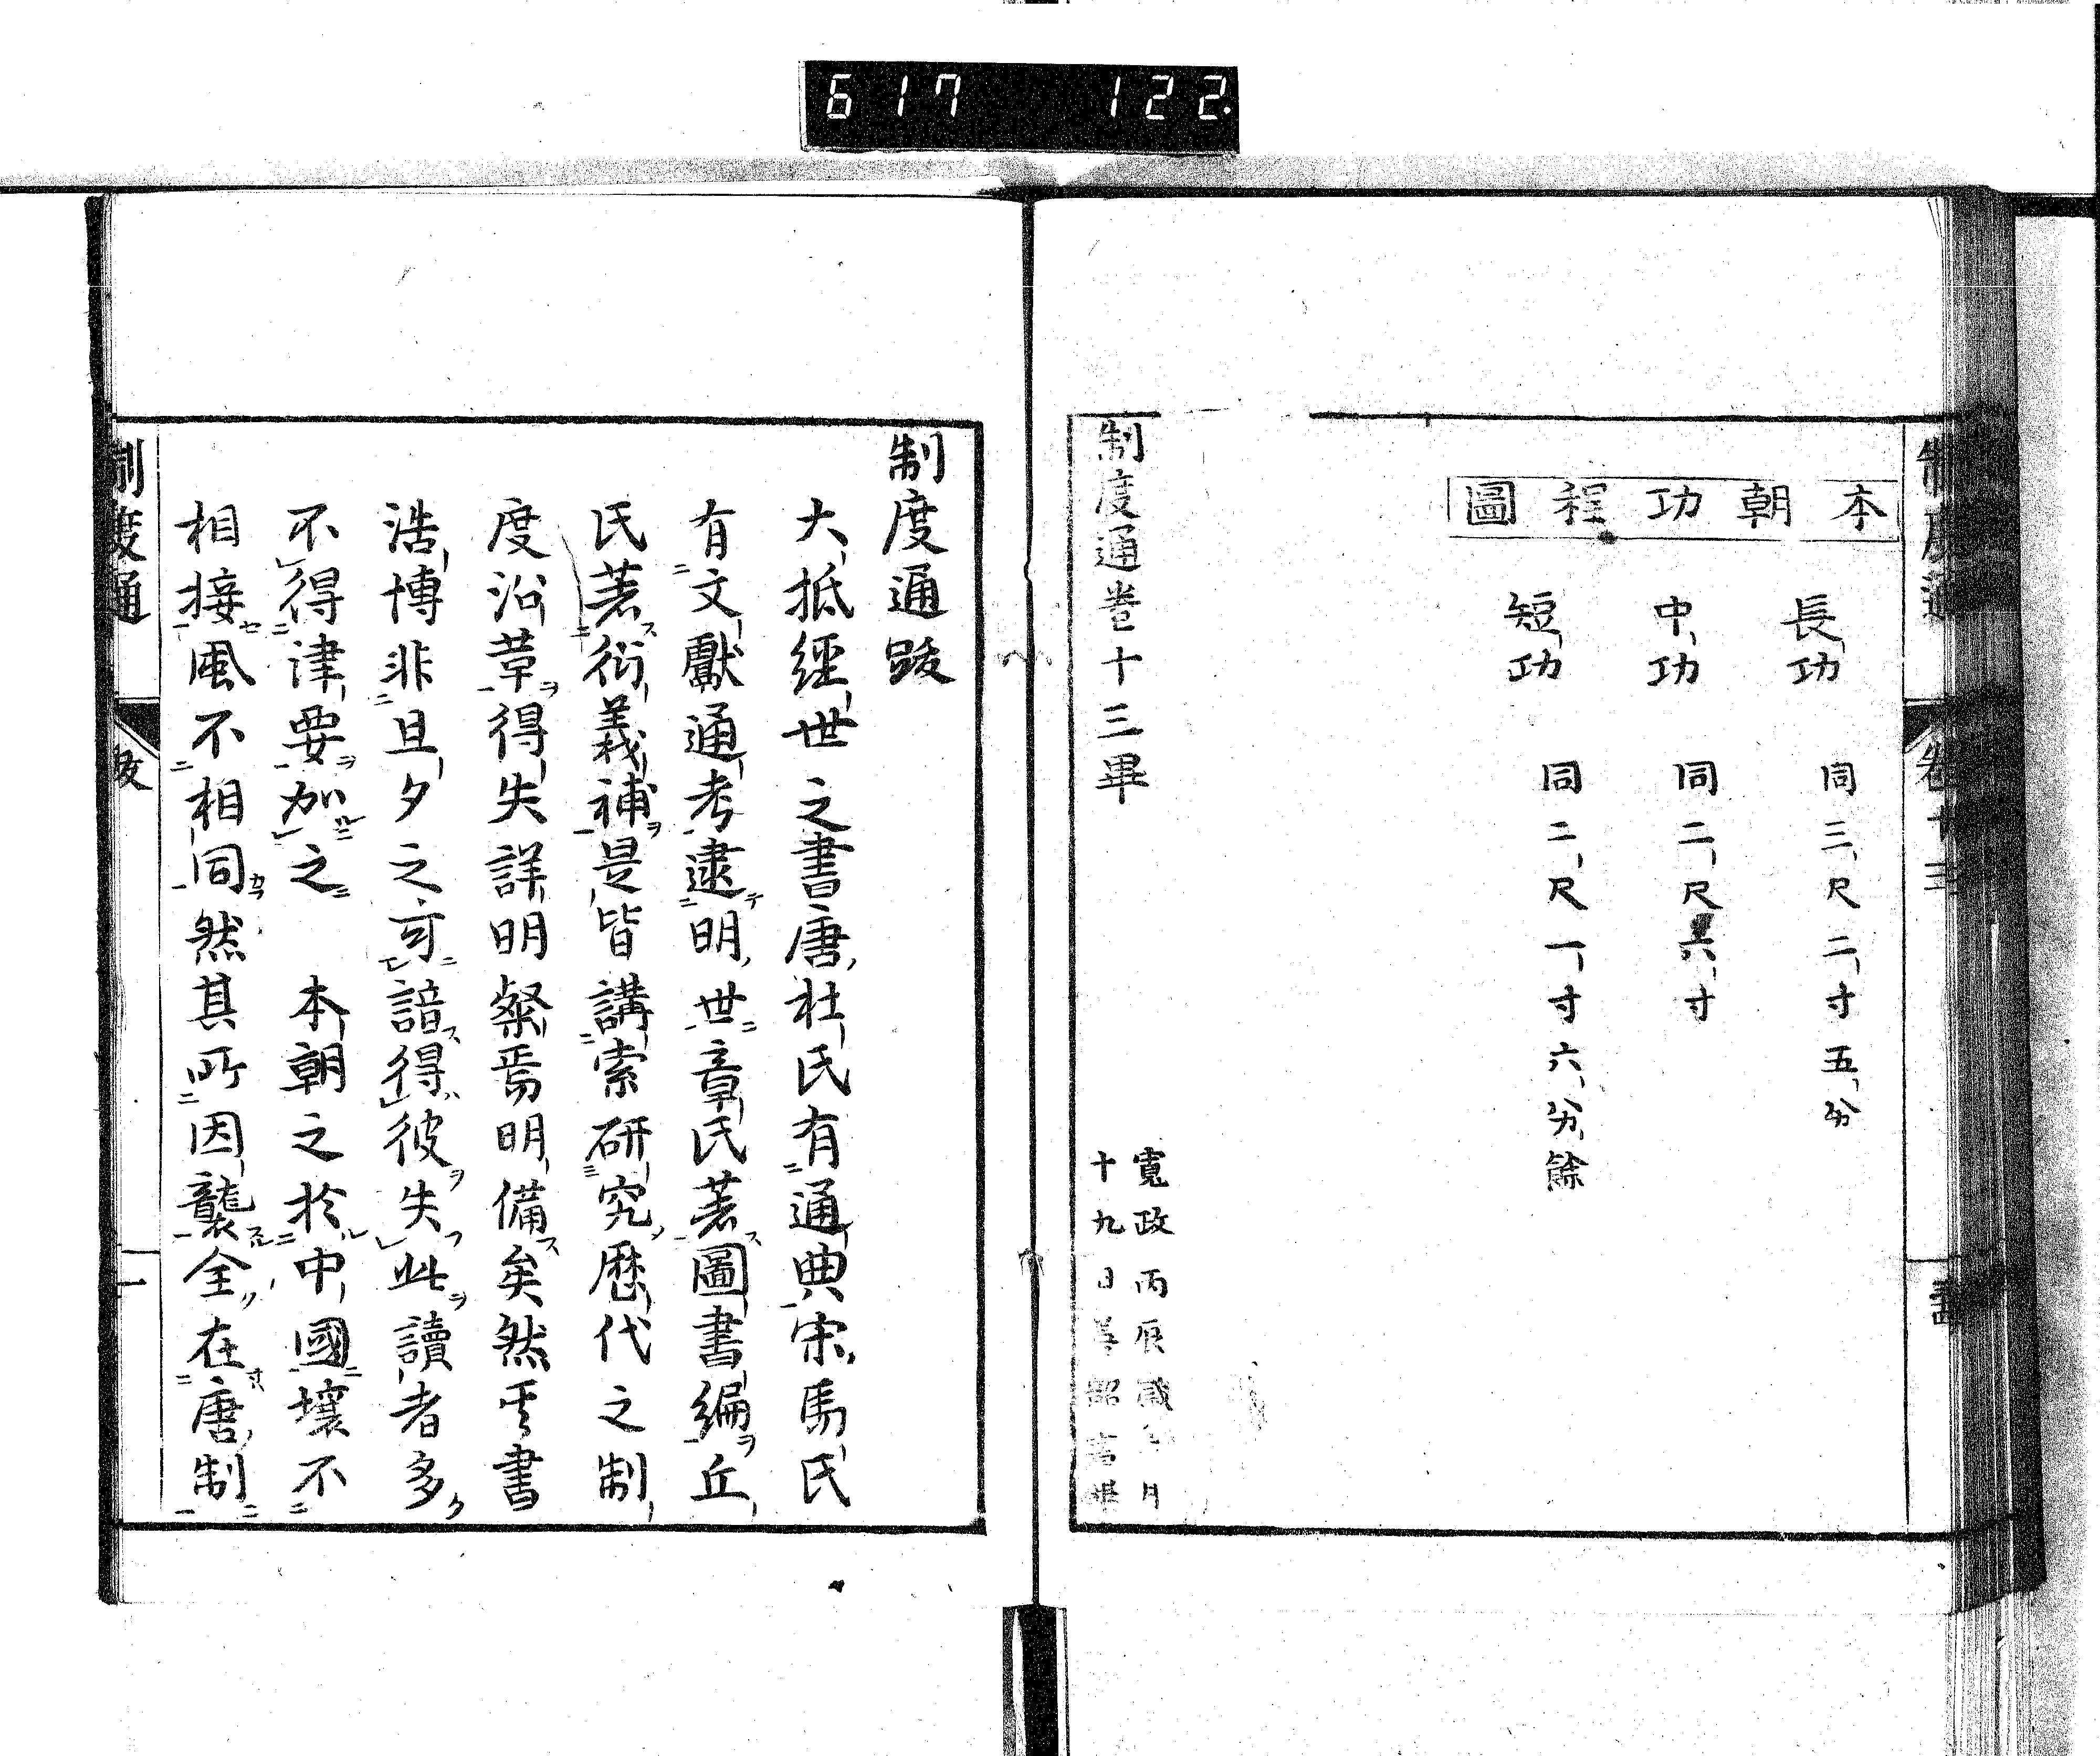 617 122.
制度通 卷十三
本朝功程圖
長功 同三尺二寸五分
中功 同二尺六寸
短功 同二尺一寸六分餘
制度通卷十三畢
寬政丙辰歲 月
十九日 書畢
制度通跋
大抵經世之書唐杜氏有通典宋馬氏
有文獻通考逮明世章氏著圖書編丘
氏著衍義補是皆講索研究歷代之制
度沿革得失詳明粲焉明備矣然其書
浩博非旦夕之可諳得彼失此讀者多
不得津要加之 本朝之於中國壤不
相接風不相同然其所因襲全在唐制
制度通 跋 一